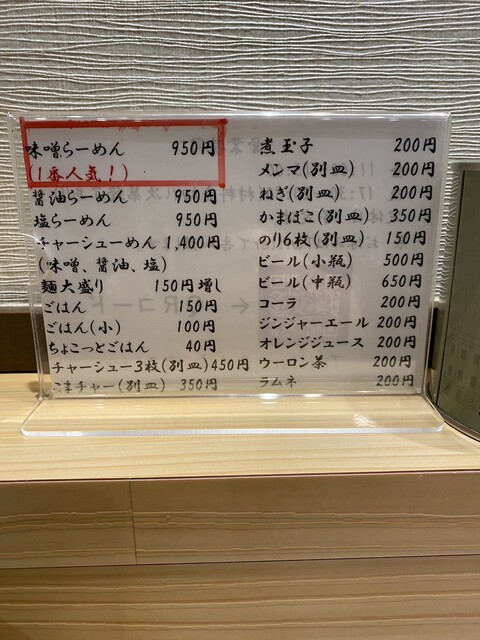 味噌らーめん 950円
(1番人気!)
醤油らーめん 950円
塩らーめん 950円
チャーシューめん 1,400円
(味噌、醤油、塩)
麺大盛り 150円増し
ごはん 150円
ごはん(小) 100円
ちょこっとごはん 40円
チャーシュー3枚(別皿) 450円
こまチャー(別皿) 350円
煮玉子 200円
メンマ(別皿) 200円
ねぎ(別皿) 200円
かまぼこ(別皿) 350円
のり6枚(別皿) 150円
ビール(小瓶) 500円
ビール(中瓶) 650円
コーラ 200円
ジンジャーエール 200円
オレンジジュース 200円
ウーロン茶 200円
ラムネ 200円